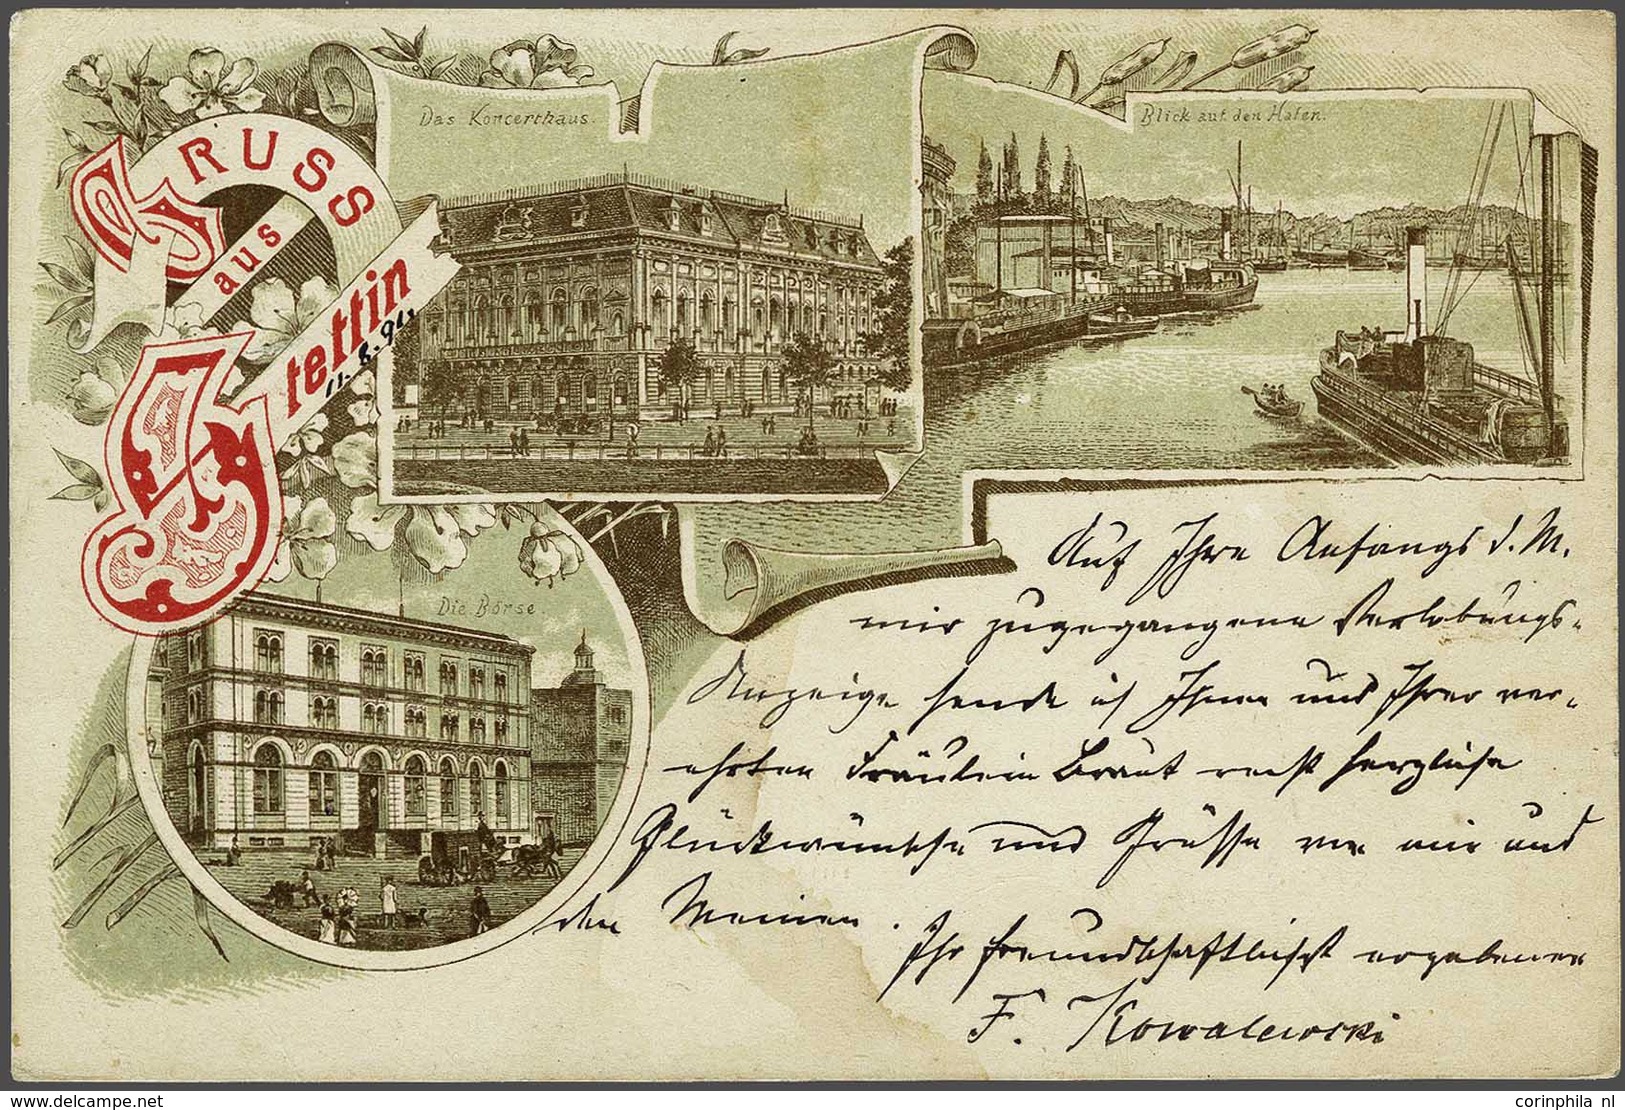 GRUSS
aus
Stettin
11.8.94.
Das Koncerthaus.
Blick auf den Hafen.
Die Börse.
Auf Ihre Anfangs d. M.
mir zugegangene Verlobungs-
Anzeige sende ich Ihnen und Ihrer ver-
ehrten Fräulein Braut recht herzliche
Glückwünsche und Grüsse von mir und
den Meinen.
Ihr freundschaftlichst ergebener
F. Kowalewski
delcampe.net
corinphila nl